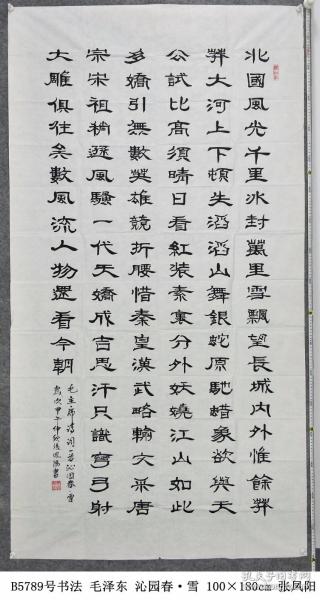 北國風光千里冰封萬里雪飄望長城內外惟餘莽
莽大河上下頓失滔滔山舞銀蛇原馳蜡象欲與天
公試比高須晴日看紅裝素裹分外妖嬈江山如此
多嬌引無數英雄競折腰惜秦皇漢武略輸文采唐
宗宋祖稍遜風騷一代天嬌成吉思汗只識彎弓射
大雕俱往矣數風流人物還看今朝
毛主席詩詞一首沁園春雪
歲次甲午仲秋張鳳陽書
B5789号书法 毛泽东 沁园春·雪 100×180cm 张凤阳